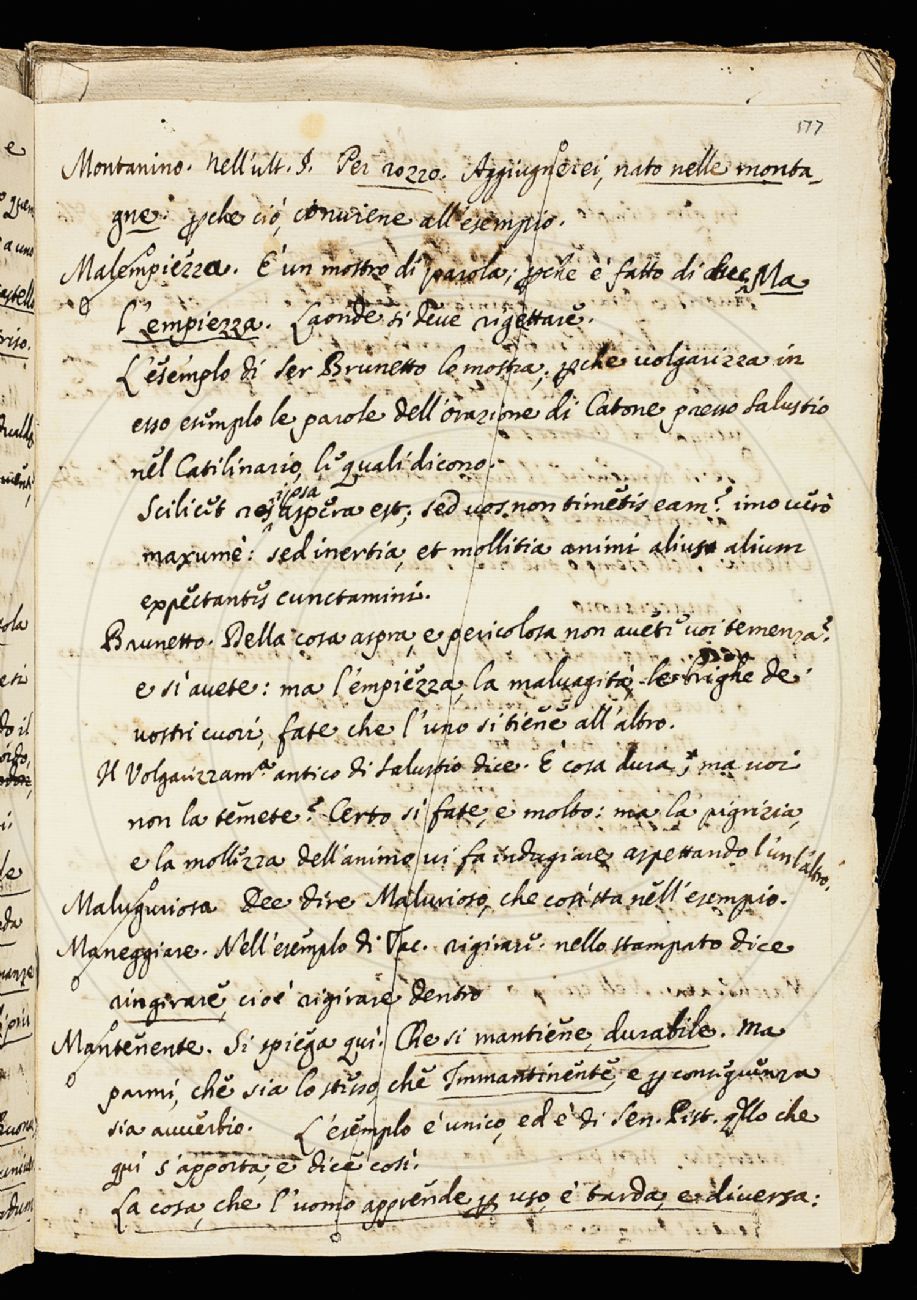 177
Montanino. Nell'ult. §. Per rozzo. Aggiugnerei, nato nelle monta-
gne. pche ciò, conviene all'esempio.
Malempiezza. È un mostro di parola; pche è fatto di due, Ma
l'empiezza. Laonde si deve rigettare.
L'esemplo di Ser Brunetto lo mostra, pche volgarizza in
esso esemplo le parole dell'orazione di Catone presso Salustio
nel Catilinario, le quali dicono.
Scilicet res ipsa aspera est; sed vos non timetis eam? imo verò
maxumè: sed inertia, et mollitia animi alius alium
expectantes cunctamini.
Brunetto. Della cosa aspra, e pericolosa non aveti voi temenza?
e sì avete: ma l'empiezza, la malvagità, le brighe de'
vostri cuori, fate che l'uno si tiene all'altro.
Il Volgarizzamº antico di Salustio dice. È cosa dura; ma voi
non la temete? Certo sì fate, e molto: ma la pigrizia,
e la mollezza dell'animo vi fa indugiare aspettando l'un l'altro.
Maluguriosa Dee dire Malurioso, che così sta nell'esempio.
Maneggiare. Nell'esemplo di Tac. rigirare. nello stampato dice
ringirare, cioè rigirare dentro
Mantenente. Si spiega quì. Che si mantiene, durabile. Ma
parmi, che sia lo stesso che Immantinente, e p conseguenza
sia avverbio. L'esemplo è unico, ed è di Sen. Pist. qllo che
quì s'apporta, e dice così.
La cosa, che l'uomo apprende p uso, è tarda, e diversa: